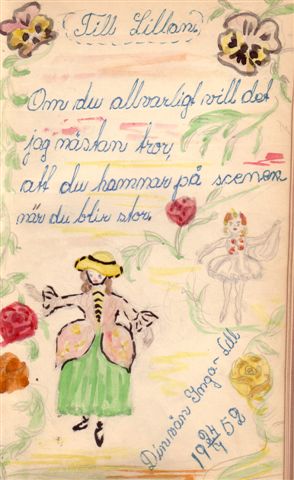 Till Lillan!
Om du allvarligt vill det
jag nästan tror,
att du hamnar på scenen
när du blir stor.
Din vän Inga-Lill
19 24/4 52